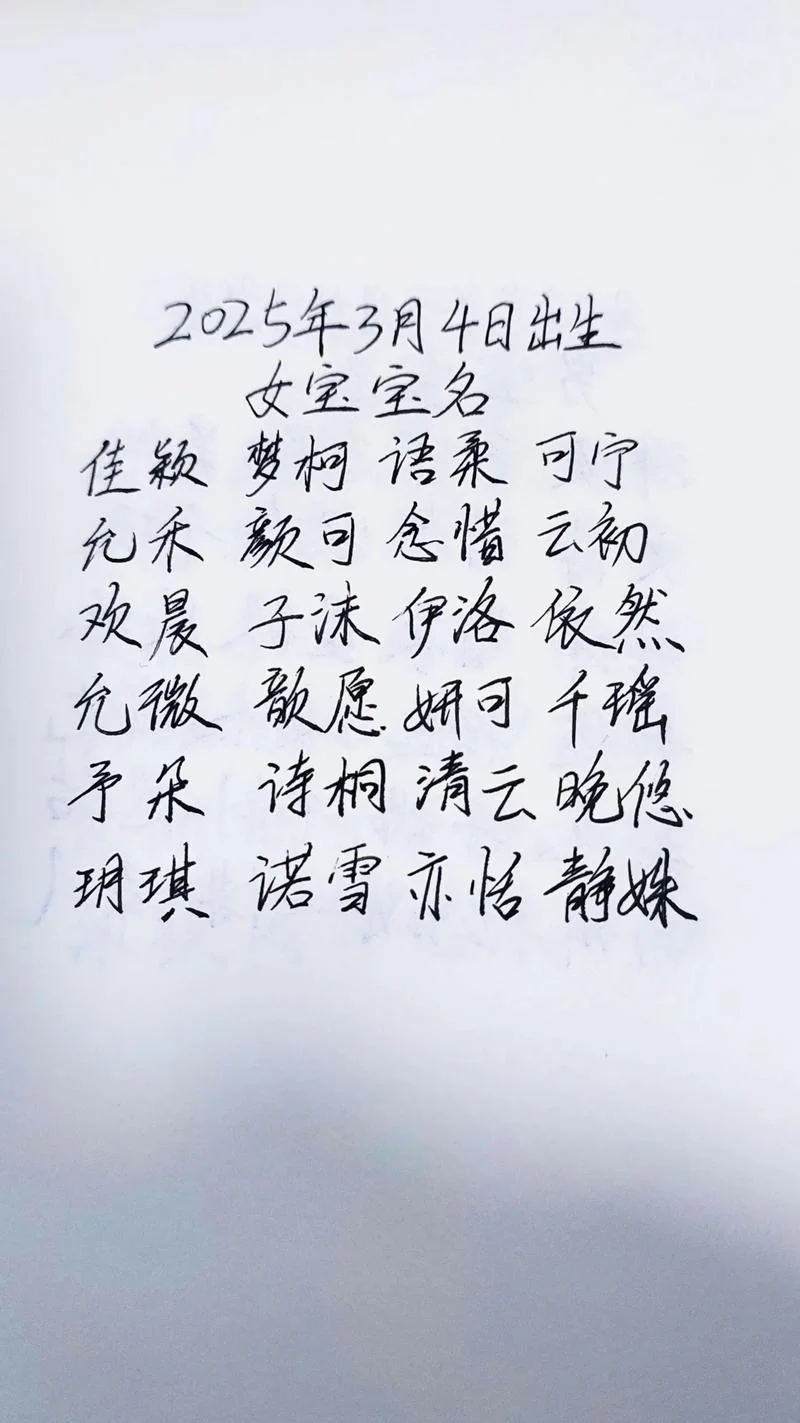 2025年3月4日出生
女宝宝名
佳颖 梦柯 语柔 可宁
允禾 颜可 念惜 云初
欢晨 子沫 伊洛 依然
允微 歆愿 妍可 千瑶
予朵 诗桐 清云 晚悠
玥琪 诺雪 亦恬 静姝